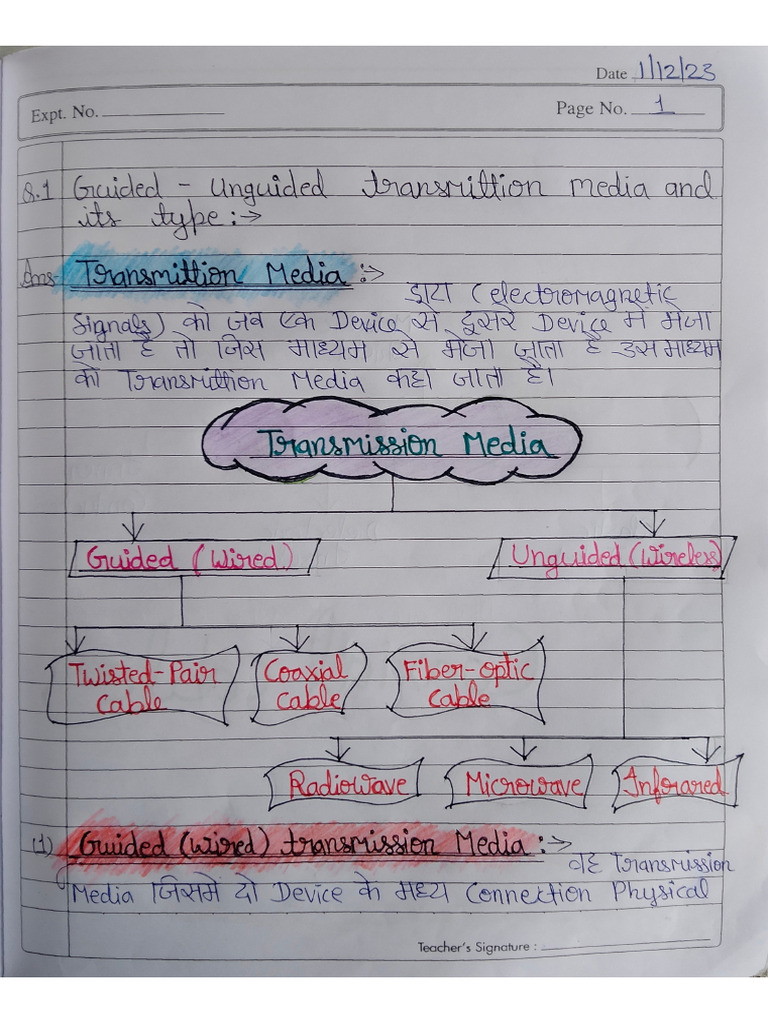 Date 1/12/23
Expt. No. Page No. 1
Q.1 Guided - Unguided transmittion media and
its type :->
Ans- Transmittion Media :->
डाटा (electromagnetic
Signals) को जब एक Device से दुसरे Device में भेजा
जाता है तो जिस माध्यम से भेजा जाता है उस माध्यम
को Transmittion Media कहा जाता है।
Transmission Media
Guided (Wired) Unguided (Wireless)
Twisted-Pair Coaxial Fiber-optic
Cable Cable Cable
Radiowave Microwave Infrared
(1) Guided (wired) transmission Media :->
वह Transmission
Media जिसमें दो Device के मध्य Connection Physical
Teacher's Signature :